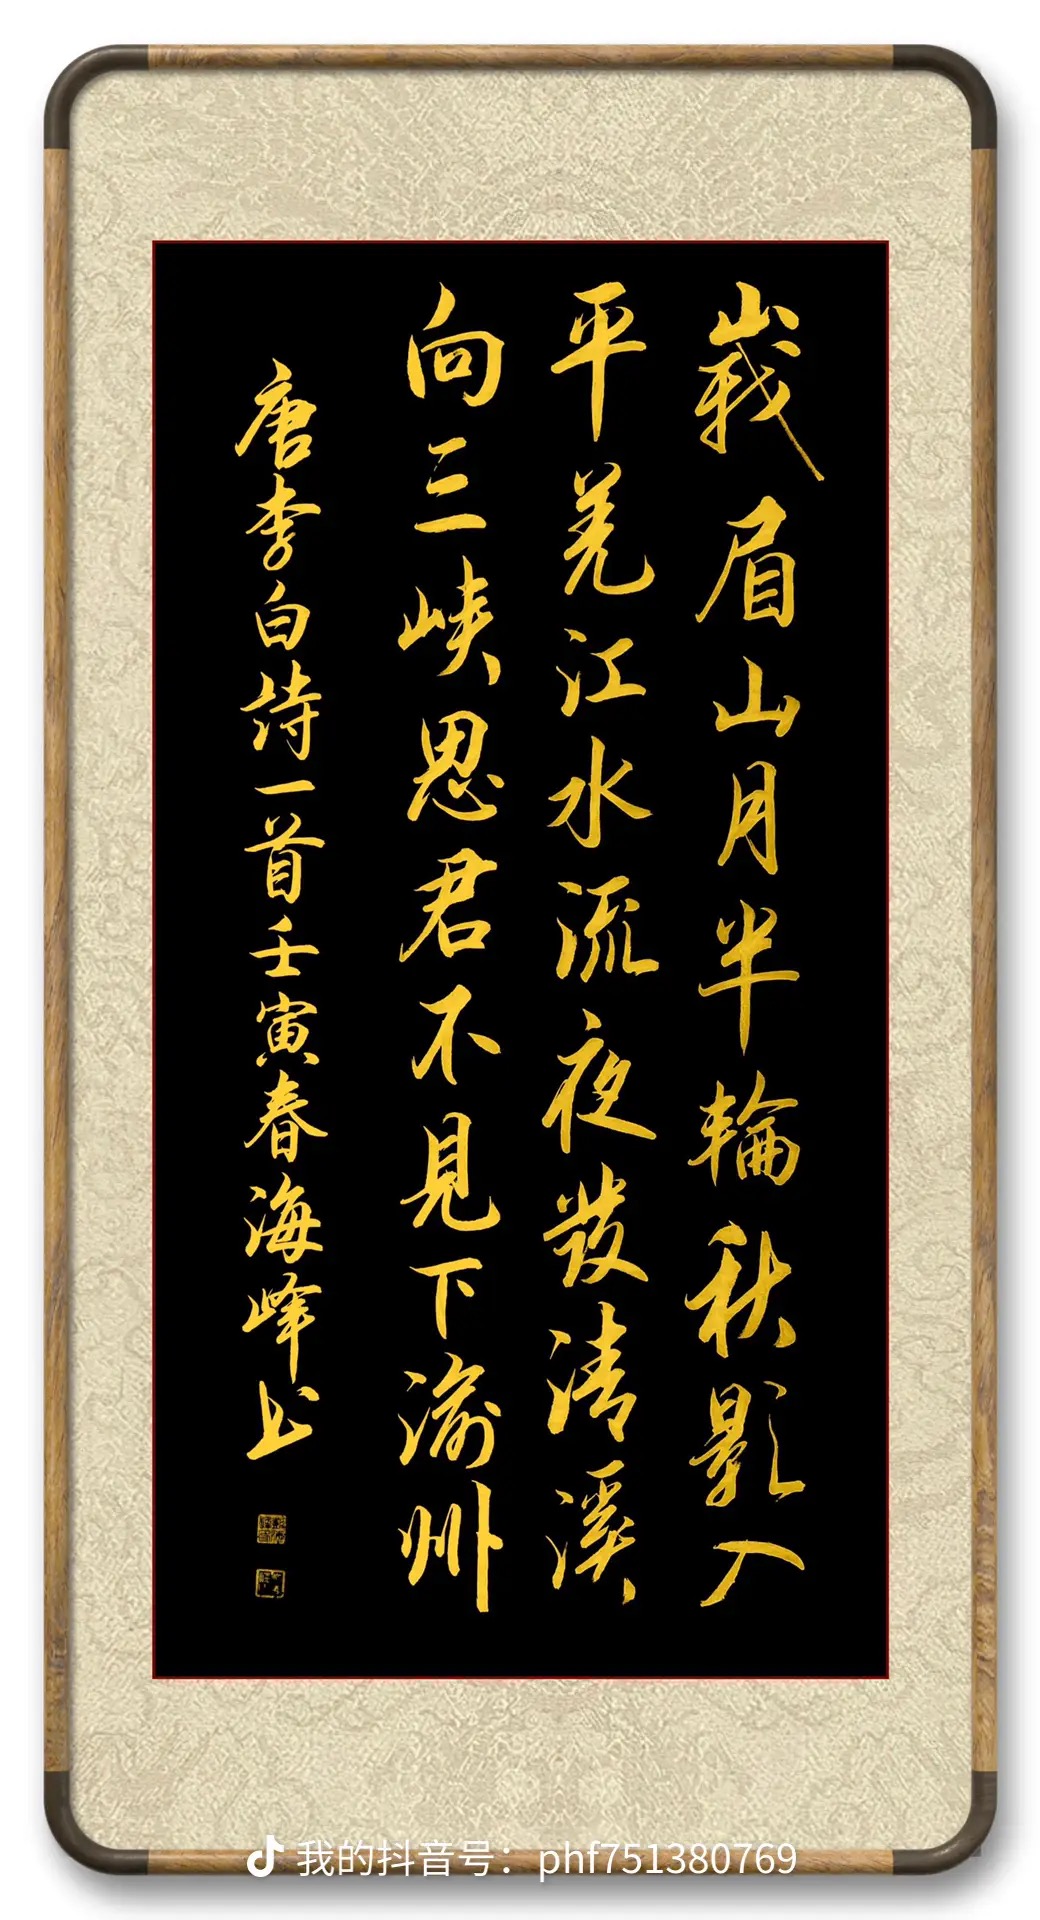 峩眉山月半輪秋影入
平羌江水流夜發清溪
向三峽思君不見下渝州
唐李白詩一首壬寅春海峰书
我的抖音号：phf751380769